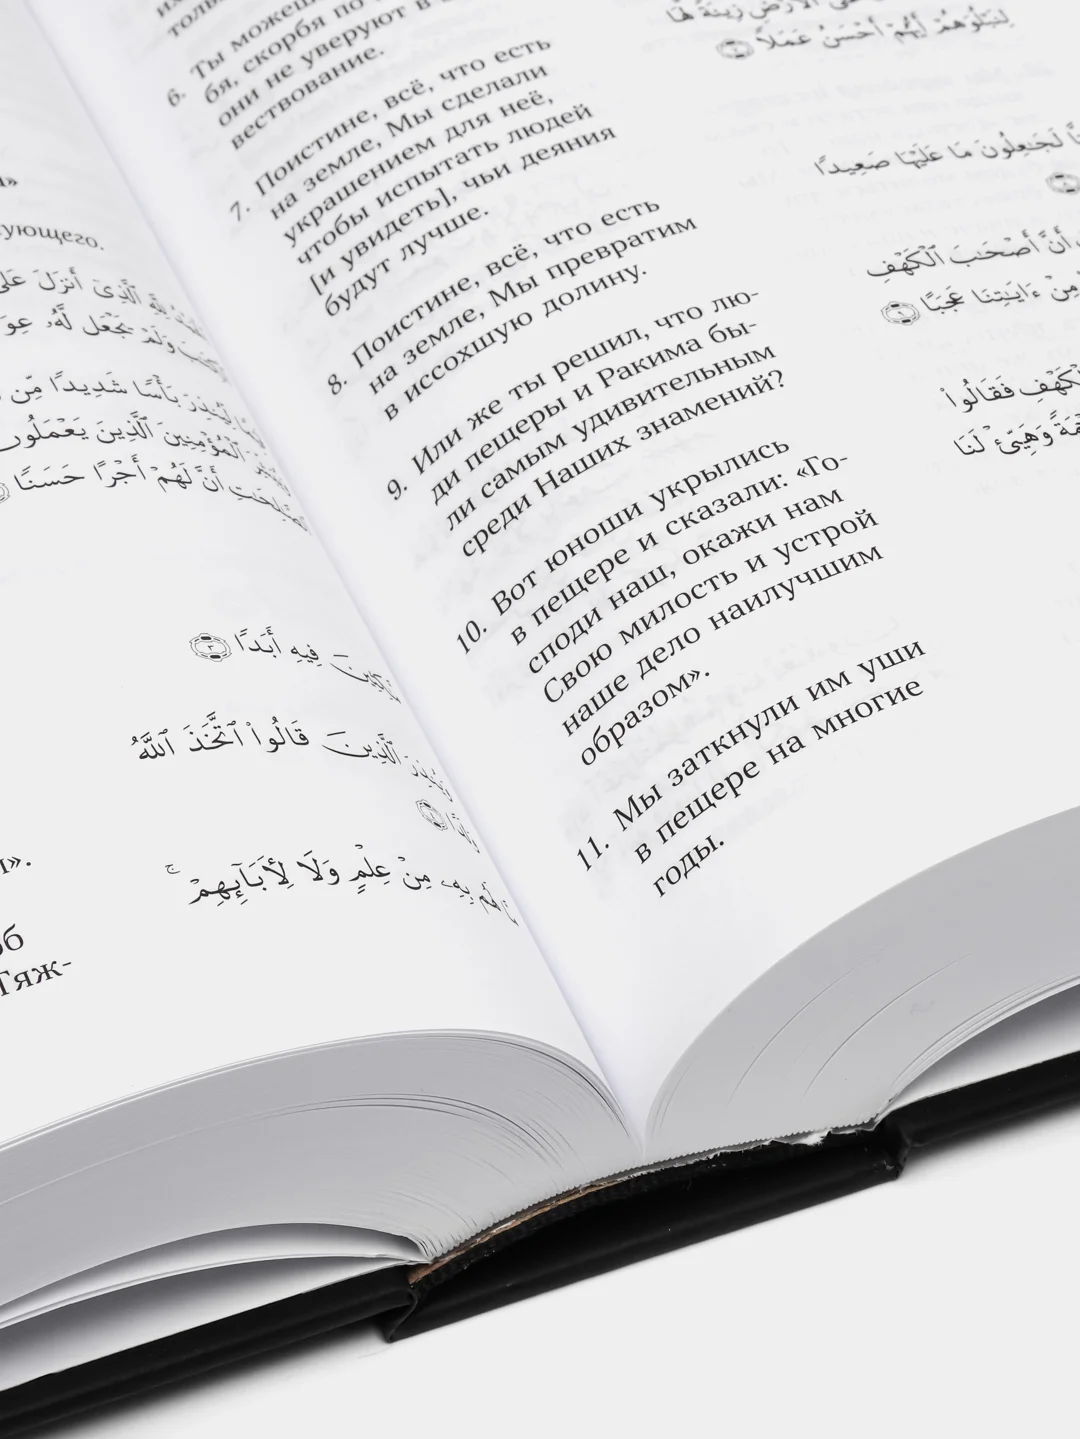 ующего.
شَدِيدًا مِّن
ٱلْمُؤْمِنِينَ ٱلَّذِينَ يَعْمَلُونَ
أَنَّ لَهُمْ أَجْرًا حَسَنًا
فِيهِ أَبَدًا ٣
ٱلَّذِينَ قَالُوا۟ ٱتَّخَذَ ٱللَّهُ
بِهِۦ مِنْ عِلْمٍ وَلَا لِءَابَآئِهِمْ ۚ
об
Тяж-
6. Ты можешь
бя, скорбя по
они не уверуют в
вествование.
7. Поистине, всё, что есть
на земле, Мы сделали
украшением для неё,
чтобы испытать людей
[и увидеть], чьи деяния
будут лучше.
8. Поистине, всё, что есть
на земле, Мы превратим
в иссохшую долину.
9. Или же ты решил, что лю-
ди пещеры и Ракима бы-
ли самым удивительным
среди Наших знамений?
10. Вот юноши укрылись
в пещере и сказали: «Го-
споди наш, окажи нам
Свою милость и устрой
наше дело наилучшим
образом».
11. Мы заткнули им уши
в пещере на многие
годы.
ٱلْأَرْضِ زِينَةً لَّهَا
لِنَبْلُوَهُمْ أَيُّهُمْ أَحْسَنُ عَمَلًا
لَجَٰعِلُونَ مَا عَلَيْهَا صَعِيدًا
أَنَّ أَصْحَٰبَ ٱلْكَهْفِ
مِنْ ءَايَٰتِنَا عَجَبًا ٩
ٱلْكَهْفِ فَقَالُوا۟
وَهَيِّئْ لَنَا